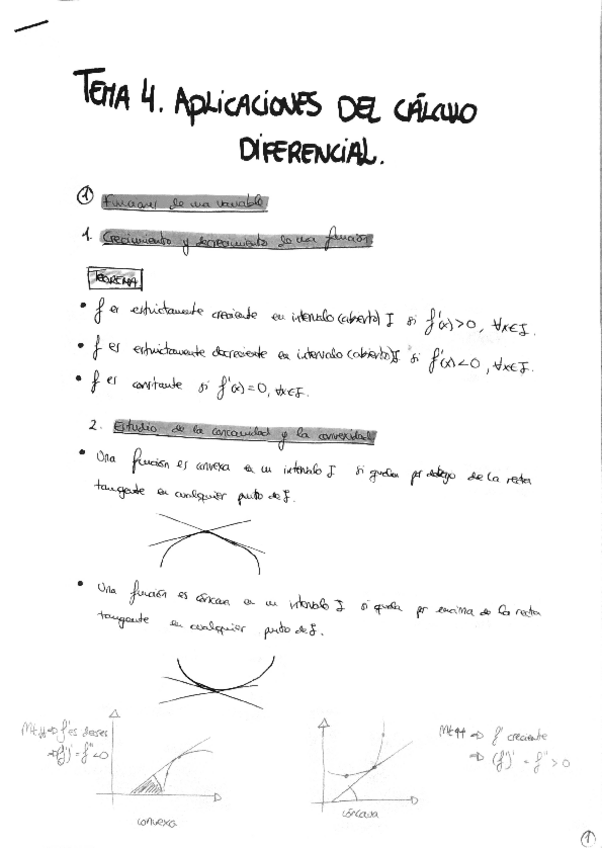 TEMA 4. APLICACIONES DEL CÁLCULO
DIFERENCIAL.
① Funciones de una variable
1. Crecimiento y decrecimiento de una función
TEOREMA
• f es estrictamente creciente en intervalo (abierto) I si f'(x)>0, ∀x∈I.
• f es estrictamente decreciente en intervalo (abierto) I si f'(x)<0, ∀x∈I.
• f es constante si f'(x)=0, ∀x∈I.
2. Estudio de la concavidad y la convexidad
• Una función es convexa en un intervalo I si queda por debajo de la recta
tangente en cualquier punto de I.
• Una función es cóncava en un intervalo I si queda por encima de la recta
tangente en cualquier punto de I.
⇒ f' es decrec
⇒ (f')' = f'' <0
convexa
cóncava
⇒ f' creciente
⇒ (f')' = f'' > 0
①